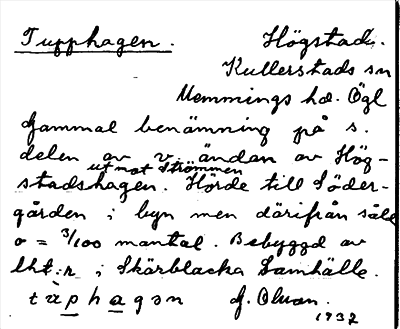 Tupphagen. Högstad.
Kullerstads sn
Memmings hd. Ögl
Gammal benämning på s.
delen av v. ändan av Hög-
ut mot Strömmen
stadshagen. Hörde till Söder-
gården i byn men därifrån såld
o = 3/100 mantal. Bebyggd av
lht:r i Skärblacka Samhälle.
tùphagən G. Olsson.
1937